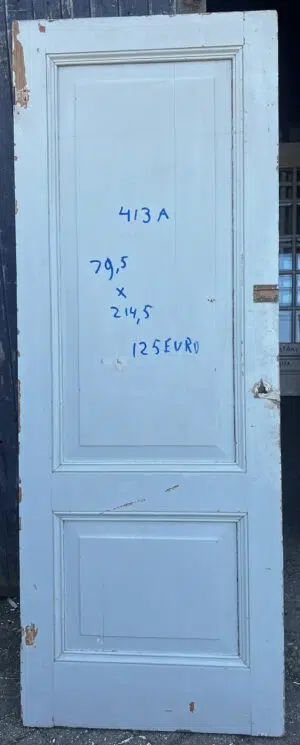 413A
79,5
x
214,5
125 EURO